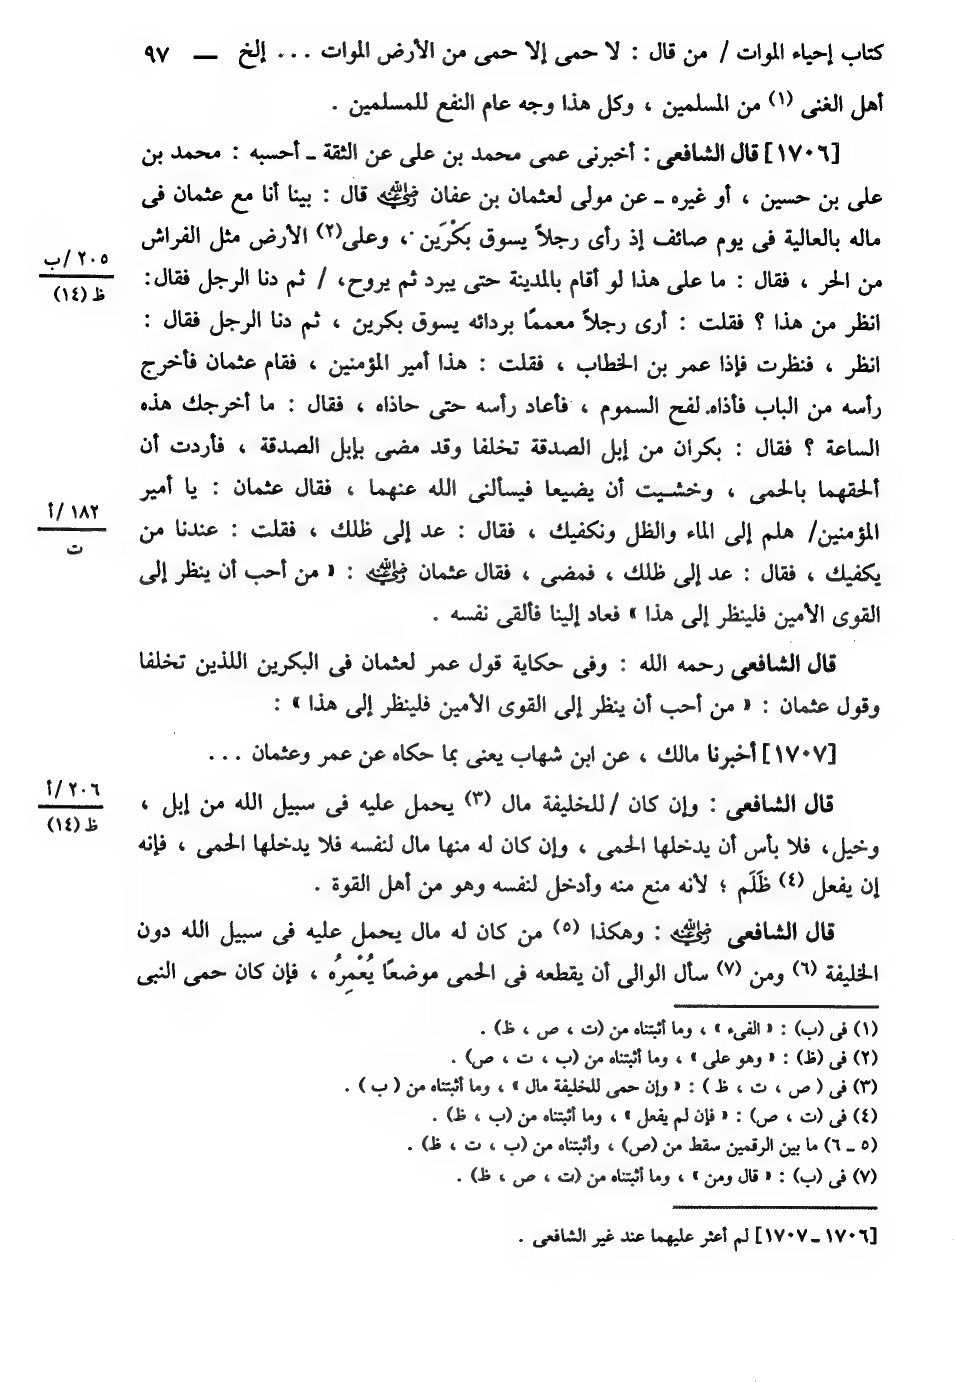 كتاب إحياء الموات / من قال : لا حمى إلا حمى من الأرض الموات ... إلخ ــ ٩٧
أهل الغنى (١) من المسلمين ، وكل هذا وجه عام النفع للمسلمين .
[١٧٠٦] قال الشافعى : أخبرنى عمى محمد بن على عن الثقة ـ أحسبه : محمد بن
على بن حسين ، أو غيره ـ عن مولى لعثمان بن عفان رضي الله عنه قال : بينا أنا مع عثمان فى
ماله بالعالية فى يوم صائف إذ رأى رجلاً يسوق بَكْرَين ، وعلى(٢) الأرض مثل الفراش
من الحر ، فقال : ما على هذا لو أقام بالمدينة حتى يبرد ثم يروح، / ثم دنا الرجل فقال:
٢٠٥ /ب
ظ (١٤)
انظر من هذا ؟ فقلت : أرى رجلاً معممًا بردائه يسوق بكرين ، ثم دنا الرجل فقال :
انظر ، فنظرت فإذا عمر بن الخطاب ، فقلت : هذا أمير المؤمنين ، فقام عثمان فأخرج
رأسه من الباب فأذاه لفح السموم ، فأعاد رأسه حتى حاذاه ، فقال : ما أخرجك هذه
الساعة ؟ فقال : بكران من إبل الصدقة تخلفا وقد مضى بإبل الصدقة ، فأردت أن
ألحقهما بالحمى ، وخشيت أن يضيعا فيسألنى الله عنهما ، فقال عثمان : يا أمير
المؤمنين/ هلم إلى الماء والظل ونكفيك ، فقال : عد إلى ظلك ، فقلت : عندنا من
١٨٢ /أ
ت
يكفيك ، فقال : عد إلى ظلك ، فمضى ، فقال عثمان رضي الله عنه : « من أحب أن ينظر إلى
القوى الأمين فلينظر إلى هذا » فعاد إلينا فألقى نفسه .
قال الشافعى رحمه الله : وفى حكاية قول عمر لعثمان فى البكرين اللذين تخلفا
وقول عثمان : « من أحب أن ينظر إلى القوى الأمين فلينظر إلى هذا » :
[١٧٠٧] أخبرنا مالك ، عن ابن شهاب يعنى بما حكاه عن عمر وعثمان ...
قال الشافعى : وإن كان / للخليفة مال (٣) يحمل عليه فى سبيل الله من إبل ،
٢٠٦ /أ
ظ (١٤)
وخيل، فلا بأس أن يدخلها الحمى ، وإن كان له منها مال لنفسه فلا يدخلها الحمى ، فإنه
إن يفعل (٤) ظَلَم ؛ لأنه منع منه وأدخل لنفسه وهو من أهل القوة .
قال الشافعى رضي الله عنه : وهكذا (٥) من كان له مال يحمل عليه فى سبيل الله دون
الخليفة (٦) ومن (٧) سأل الوالى أن يقطعه فى الحمى موضعًا يُعْمِرُه ، فإن كان حمى النبى
(١) فى (ب) : « الفىء » ، وما أثبتناه من (ت ، ص ، ظ) .
(٢) فى (ظ) : « وهو على » ، وما أثبتناه من (ب ، ت ، ص) .
(٣) فى ( ص ، ت ، ظ ) : « وإن حمى للخليفة مال » ، وما أثبتناه من ( ب ) .
(٤) فى (ت ، ص) : « فإن لم يفعل » ، وما أثبتناه من (ب ، ظ) .
(٥ ـ ٦) ما بين الرقمين سقط من (ص) ، وأثبتناه من (ب ، ت ، ظ) .
(٧) فى (ب) : « قال ومن » ، وما أثبتناه من (ت ، ص ، ظ) .
[١٧٠٦ ـ ١٧٠٧] لم أعثر عليهما عند غير الشافعى .